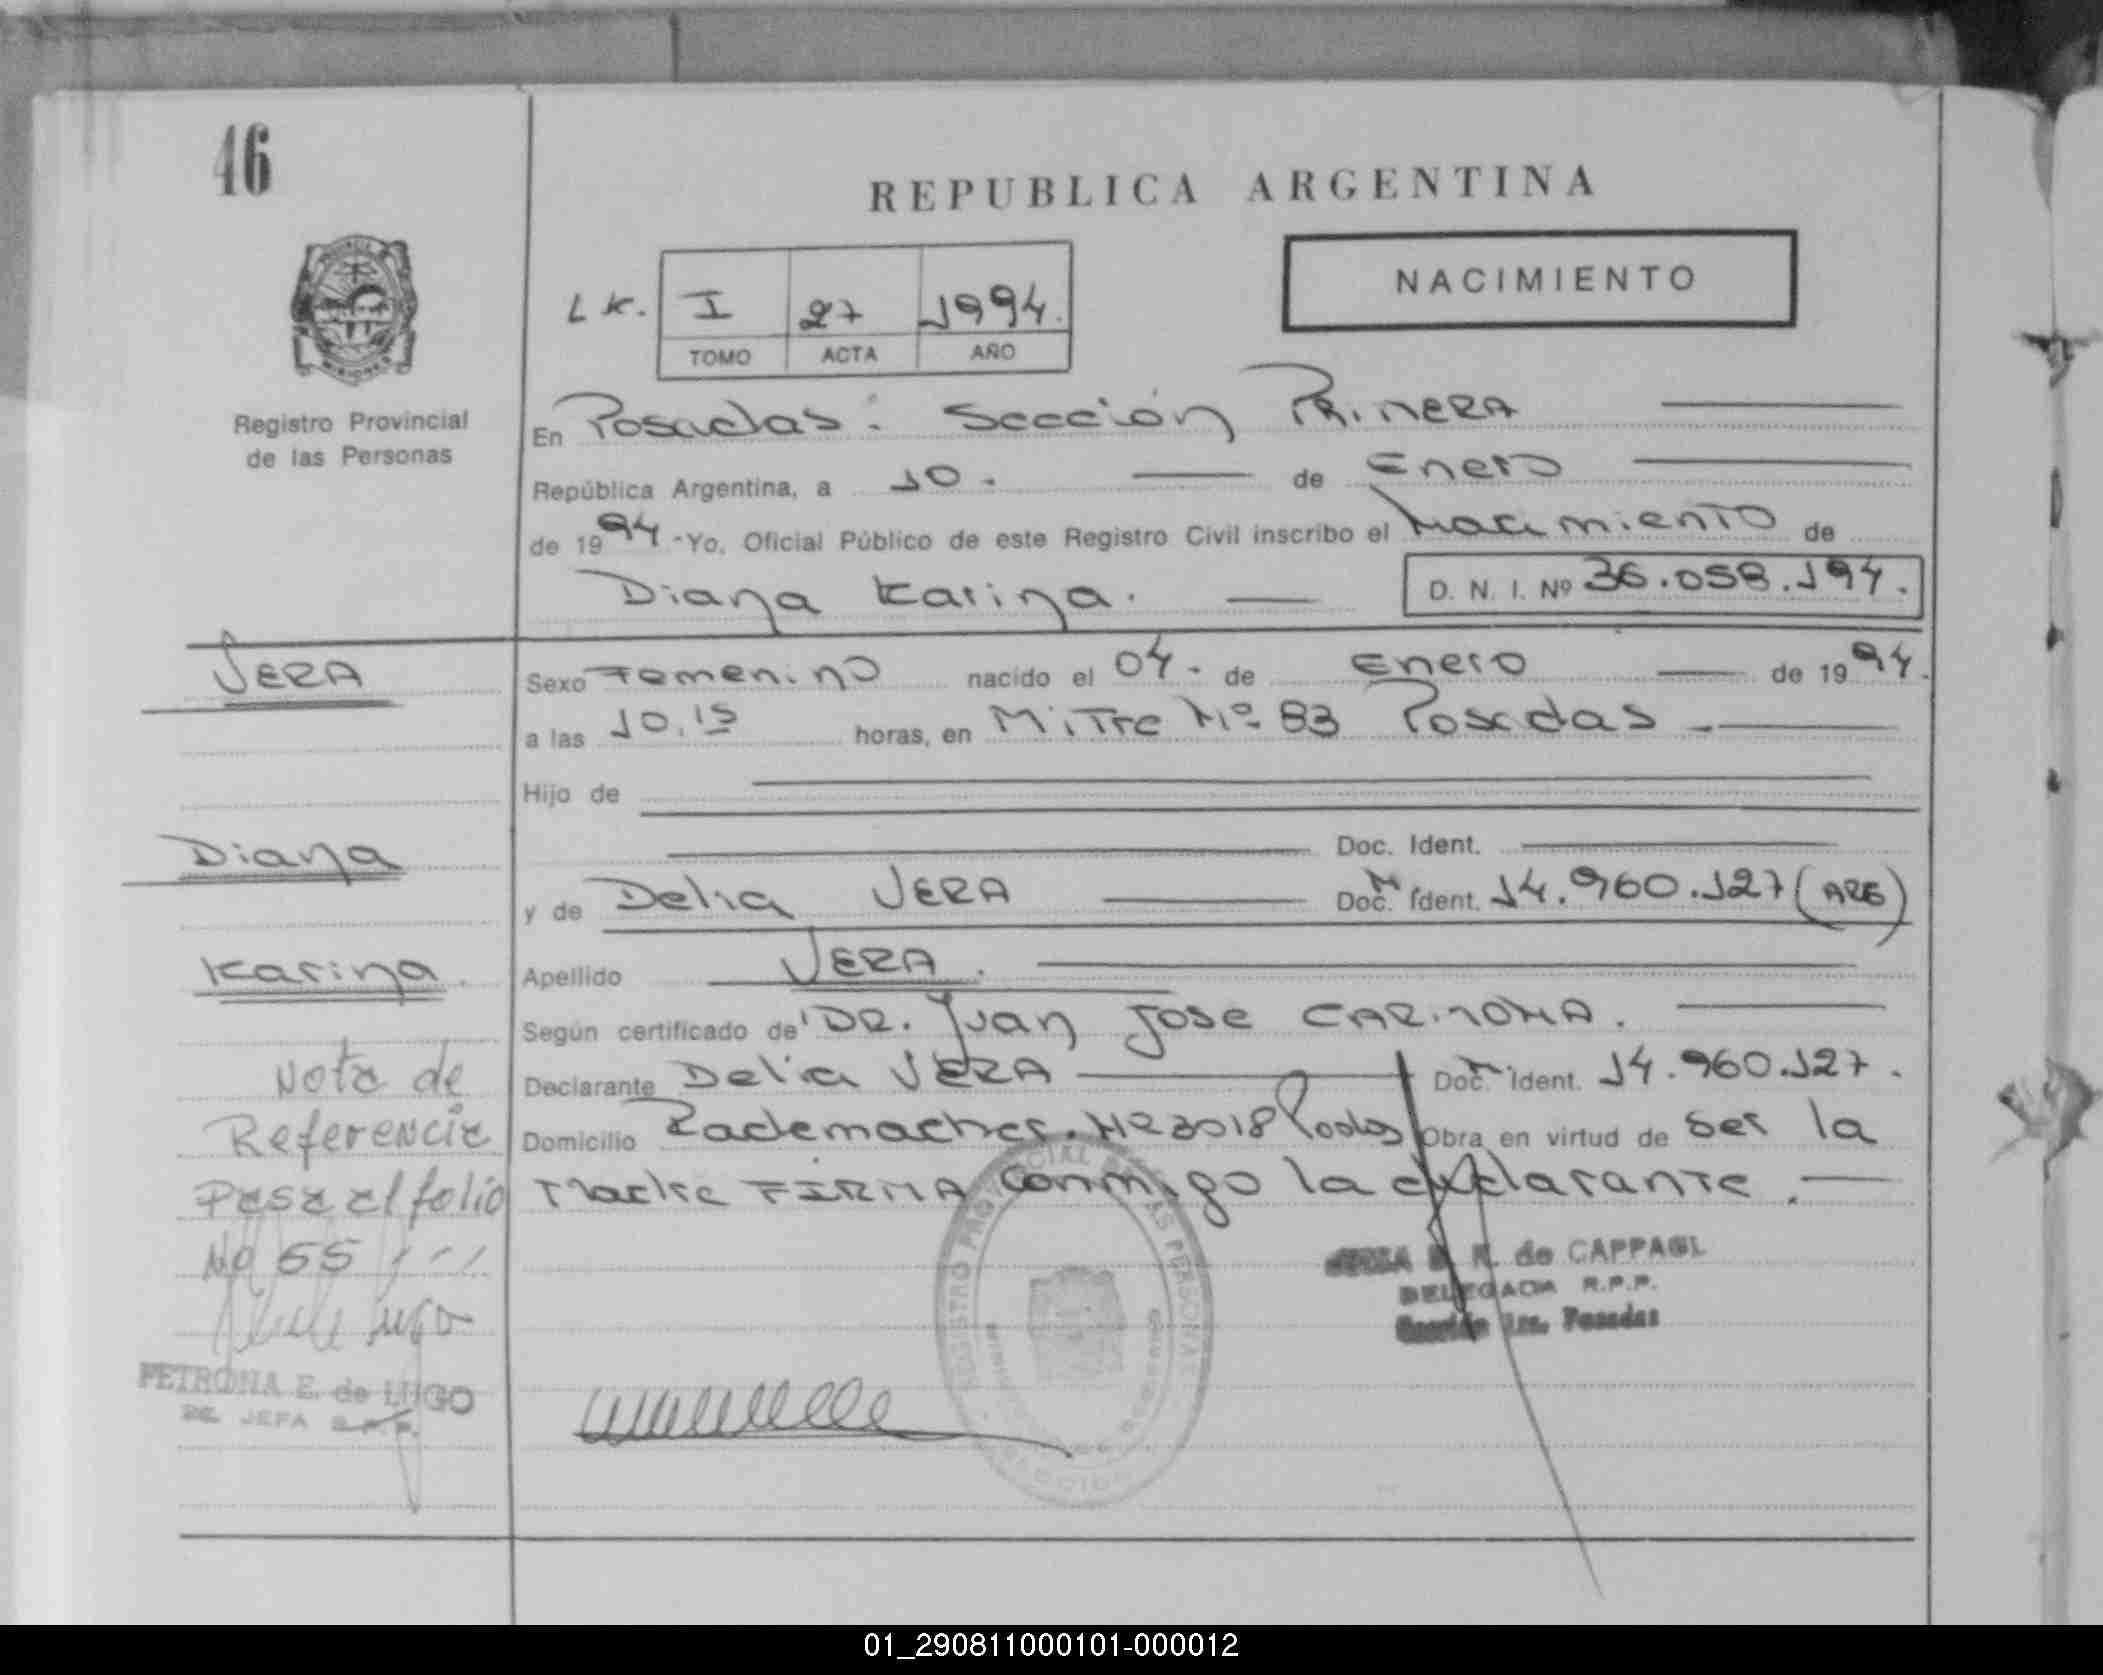 46
REPUBLICA ARGENTINA
NACIMIENTO
I 27 1994.
TOMO ACTA AÑO
Registro Provincial
de las Personas
En Posadas. Sección Primera
República Argentina, a 10. de Enero
de 1994 - Yo, Oficial Público de este Registro Civil inscribo el Nacimiento de
Diana Karina. D. N. I. Nº 36.058.194.
VERA
Sexo Femenino nacido el 04 - de Enero de 1994.
a las 10,15 horas, en Mitre Nº 83 Posadas -
Hijo de
Doc. Ident.
Diana
y de Delia VERA Doc. Ident. 14.960.127 (ARG)
Karina.
Apellido VERA.
Según certificado de DR. Juan Jose
Declarante Delia VERA Doc. Ident. 14.960.127.
Domicilio Rademacher. Nº 3018 Psdas Obra en virtud de ser la
Madre FIRMA Conmigo la declarante.
Nota de
Referencia
Pasa al folio
Nº 55
R. de CAPPAGL
DELEGADA R.P.P.
Sección 1ra. Posadas
PETRONA E. de LUGO
JEFA
REGISTRO PROVINCIAL DE LAS PERSONAS
01_290811000101-000012